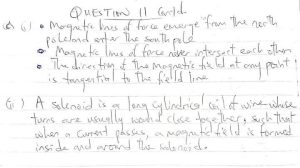 QUESTION 11
a (i) • Magnetic lines of force emerge from the north
pole and enter the south pole
• Magnetic lines of force never intersect each other
• The direction of the magnetic field at any point
is tangential to the field line
(ii) A solenoid is a long cylindrical coil of wire whose
turns are usually wound close together, such that
when a current passes, a magnetic field is formed
inside and around the solenoid.